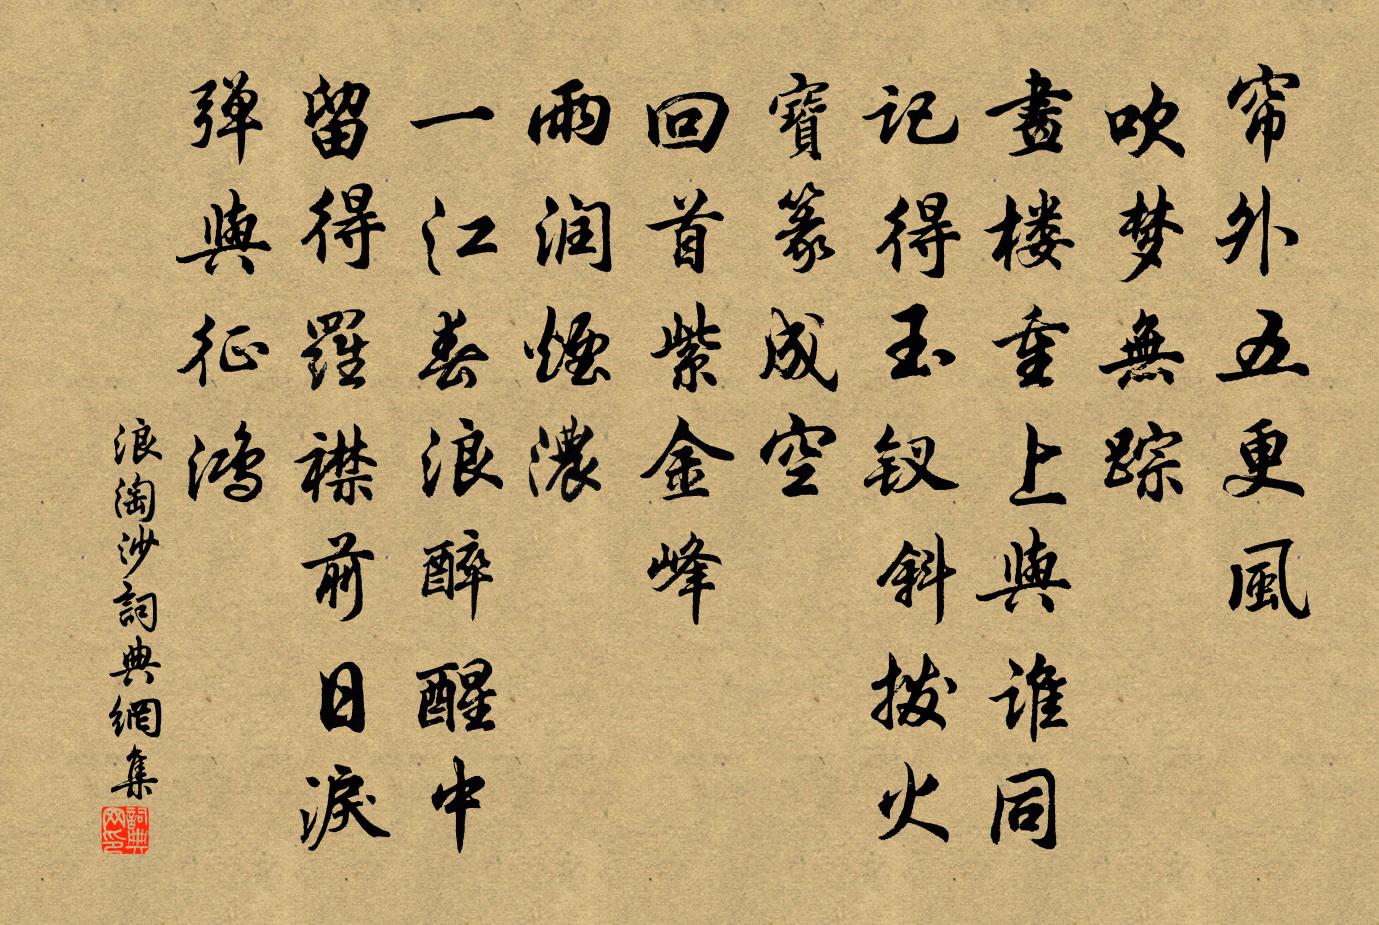 帘外五更風
吹梦無踪
畫楼重上與谁同
记得玉钗斜拨火
寶篆成空
回首紫金峰
雨润煙濃
一江春浪醉醒中
留得羅襟前日淚
弹與征鴻
浪淘沙詞典網集
詞典网印